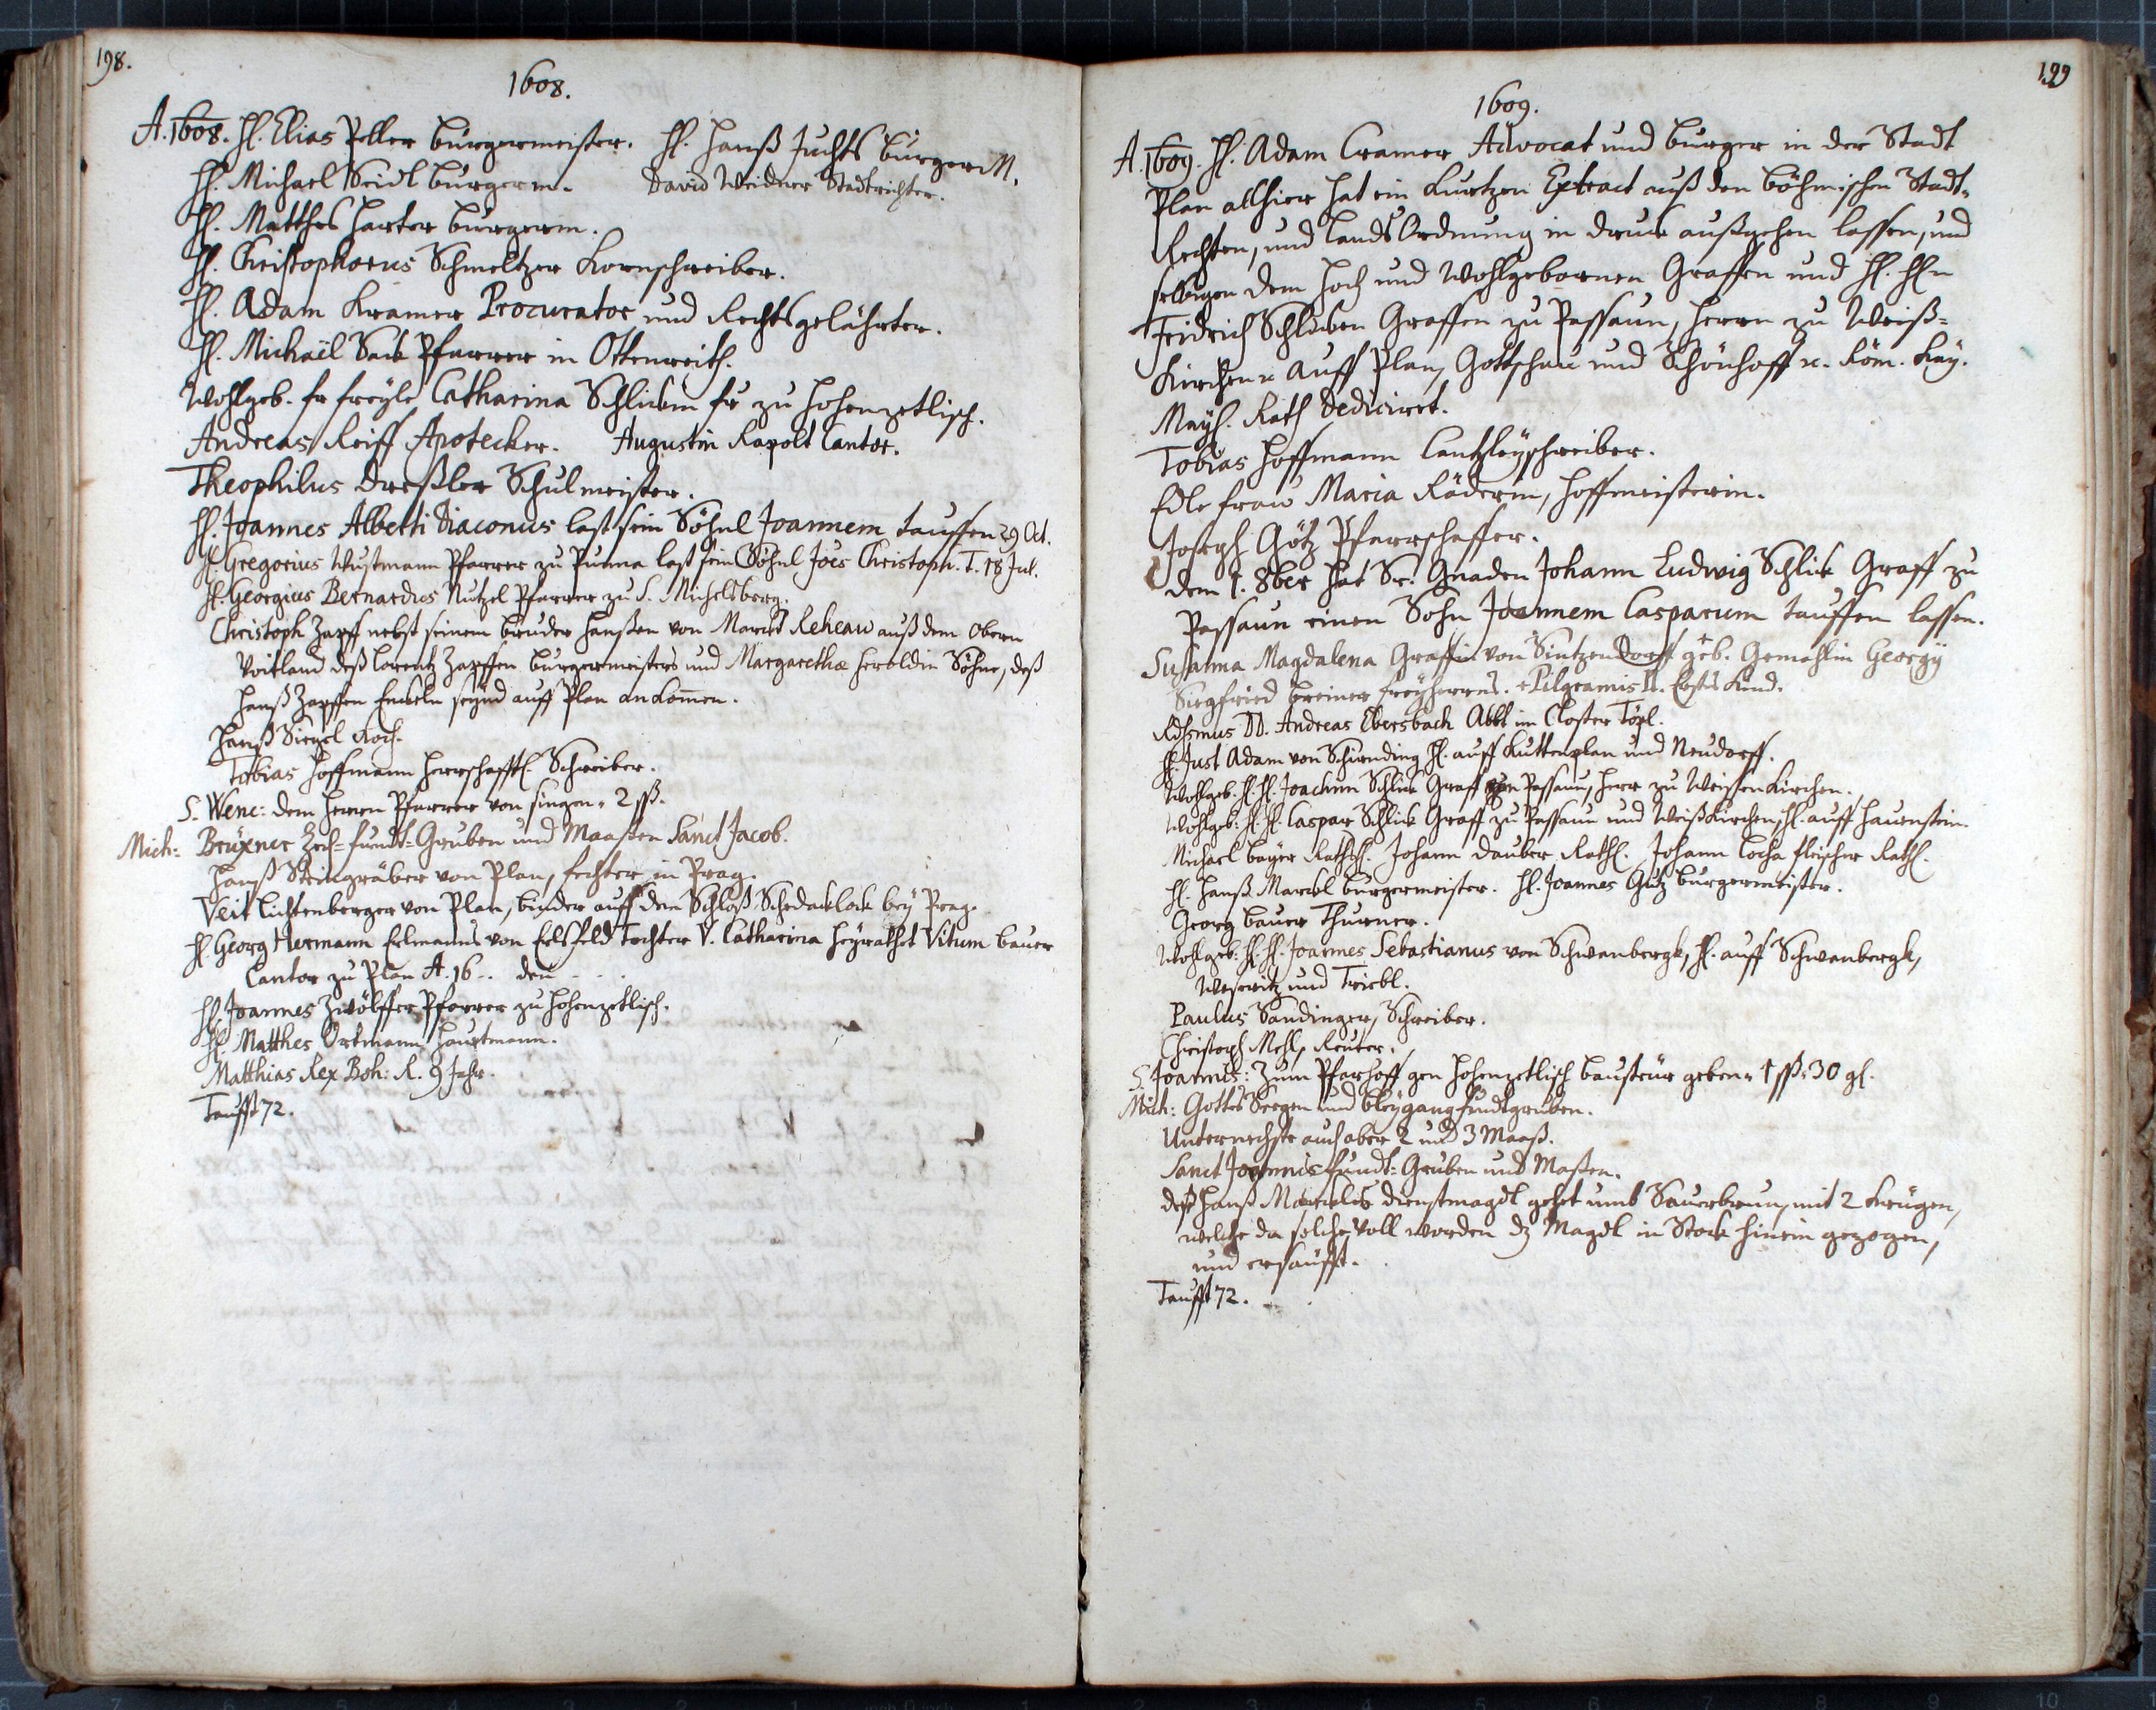 198.
1608.
A. 1608. H. Elias Peller burgermeister. H. Hanß Juchts burgerM.
H. Michael Seidl burgerm. David Weidner Stadtrichter.
H. Matthes Harter burgerm.
H. Christophorus Schmeltzer Kornschreiber.
H. Adam Kramer Procurator und Rechtsgelährter.
H. Michaël Sack Pfarrer in Ottenreith.
Wohlgeb. fr freyle Catharina Schlickin fr zu Hohenzetlisch.
Andreas Reiff Apotecker. Augustin Rapolt Cantor.
Theophilus Dreßler Schulmeister.
H. Joannes Alberti Diaconus last sein Söhnl Joannem tauffen 29 Oct.
H. Gregorius Wustmann Pfarrer zu Purna last sein Söhnl Joes Christoph. T. 18 Jul.
H. Georgius Bernardus Nutzel Pfarrer zu S. Michelsberg.
Christoph Zapff nebst seinem bruder Hanßen von Marckt Reheaw auß dem Obern
Voitland deß Lorentz Zapffen burgermeisters und Margarethæ Heroldin Söhne, deß
Hanß Zapffen Enckeln seynd auff Plan ankom̄en.
Hanß Siegel Koch.
Tobias Hoffmann Herrschafftl. Schreiber.
S. Wenc: dem Herrn Pfarrer von singen = 2 ßß.
Mich: Bruxner Zech= fundt=Gruben und Maaßen Sanct Jacob.
Hanß Steingräber von Plan, fechter in Prag.
Veit Lichtenberger von Plan, binder auff dem Schloß Schedacklock bey Prag.
H. Georg Hermann Erlmanns von Erlsfeld Tochter V. Catharina heyrathet Vitum Bauer
Cantor zu Plan A. 16.. den . . .
H. Joannes Zwölffer Pfarrer zu Hohenzetlisch.
H. Matthes Ortmann Hauptmann.
Matthias Rex Boh: R. 9 Jahr.
Taufft 72.
199
1609.
A. 1609. H. Adam Cramer Advocat und burger in der Stadt
Plan allhier hat ein kurtzen Extract auß den böhmischen Stadt=
Rechten, und Lands Ordnung in druck außgehen lassen, und
selbigen dem Hoch und Wohlgebornen Graffen und H. Hn
Fridrich Schlicken Graffen zu Passaun, Herrn zu Weiß=
Kirchen auff Plan, Gottschau und Schönhoff ꝛc. Röm. Kay.
May. Rath dediciret.
Tobias Hoffmann Cantzleyschreiber.
Edle frau Maria Räderin, Hoffmeisterin.
Joseph Götz Pfarrschaffer.
dem 1. 8ber hat Sr. Gnaden Johann Ludwig Schlick Graff zu
Passaun einen Sohn Joannem Casparum tauffen lassen.
Susanna Magdalena Graffin von Sintzendorff geb. Gemahlin Georgÿ
Siegfried Breiner freyherrns. + Pilgramis II. Erstes Kind.
Rdssmus DD. Andreas Ebersbach Abbt im Closter Töpl.
H. Just Adam von Schirnding H. auff Kuttenplan und Neudorff.
Wohlgeb. H. H. Joachim Schlick Graff zu Passaun, Herr zu Weissen Kirchen.
Wohlgeb: H. H. Caspar Schlick Graff zu Passaun und Weißkirchen, H. auff Hauenstein.
Michael bayer Rathsh. Johann Dauber Rathh. Johann Locha fleischer Rath.
H. Hanß Marckl burgermeister. H. Joannes Gütz burgermeister.
Georg bauer Thurner.
Wohlgeb. H. H. Joannes Sebastianus von Schwanbergk, H. auff Schwanbergk,
Weseritz und Triebl.
Paulus Sandinger, Schreiber.
Christoph Mehl, Reuter.
S. Joannis: Zum Pfarhoff gen Hohenzetlisch bausteur geben = 1 ßß. 30 gl.
Mich: Gottes Seegen und bleygang fundtgruben.
Unternechste auch ober 2 und 3 Maaß.
Sanct Joannis fundt=Gruben und Maßen.
deß Hanß Marckls dienstmagdl gehet umb Sauerbrun, mit 2 Krügen,
welche da solche voll worden dz Magdl in Stock hinein gezogen,
und ersäufft.
Taufft 72.